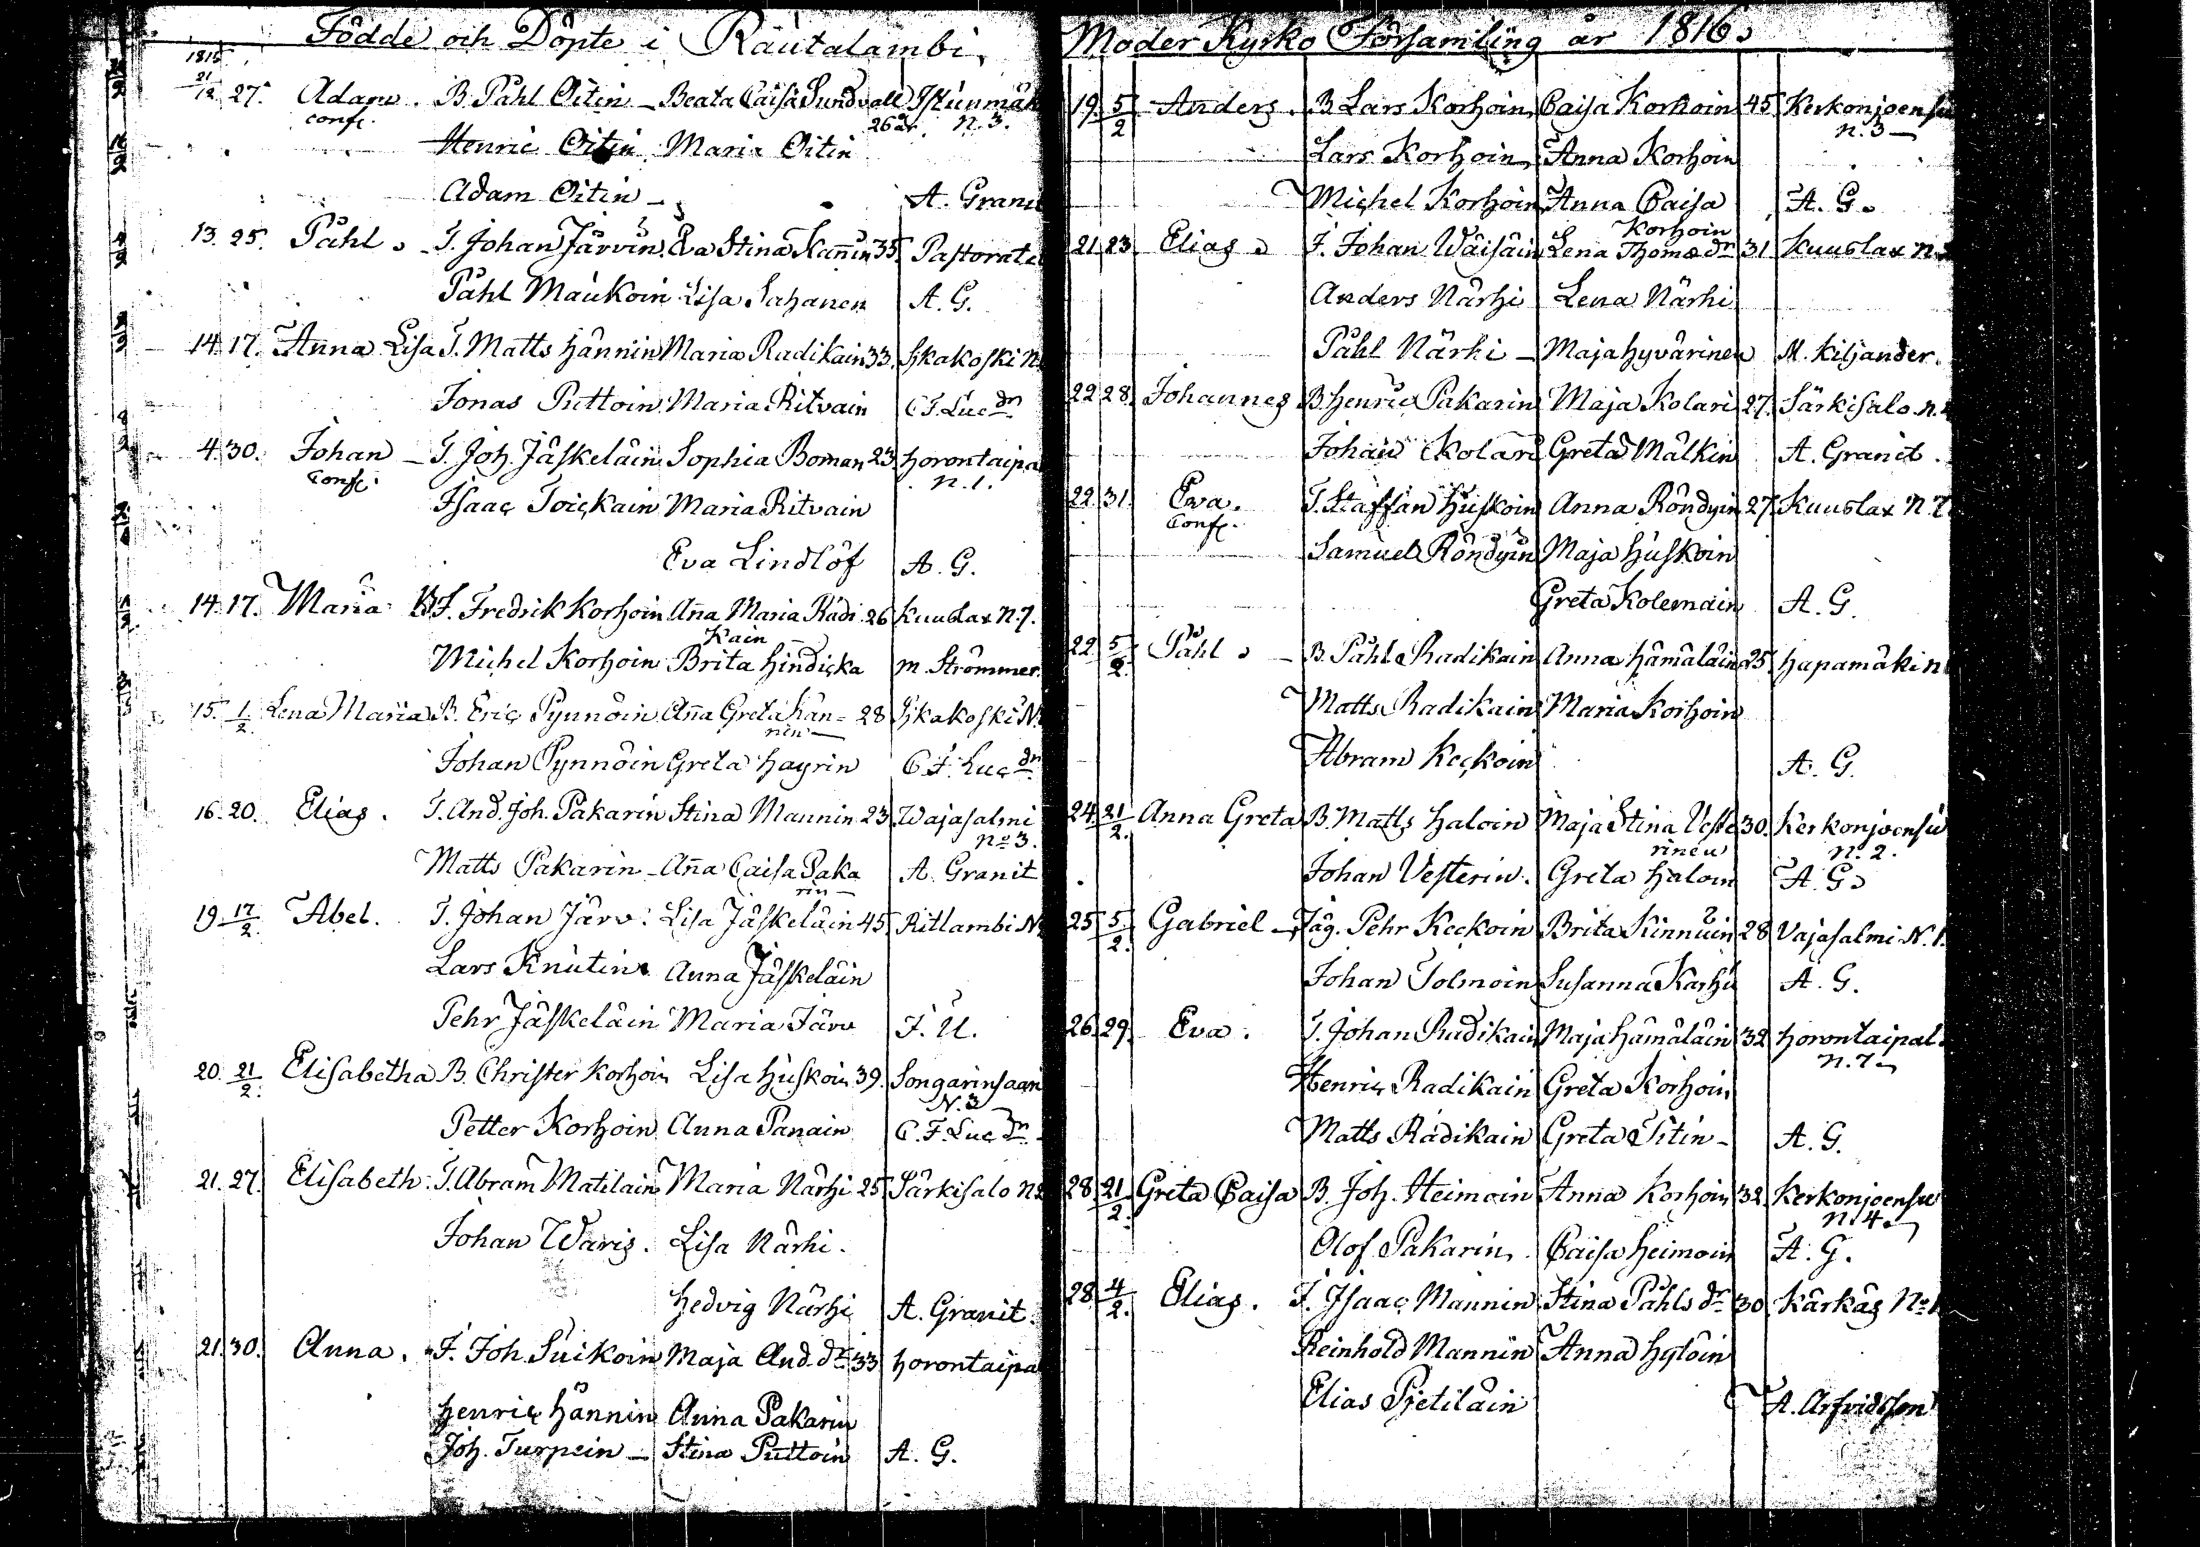 Födde och Döpte i Rautalambi
1815
21/12 27. Adam. B. Påhl Oitin - Beata Caisa Sundvall Istunmäk
conf. 26 år. N. 3.
Henric Oitin Maria Oitin
Adam Oitin - A. Granit
13. 25. Påhl. T. Johan Järvin. Eva Stina Kanin 35. Pastorate
Påhl Maukoin Lisa Sahanen A. G.
14. 17. Anna Lisa T. Matts Hännin Maria Radikain 33. Iskakoski N.
Jonas Puttoin Maria Ritvain C. F. Luc dn
4. 30. Johan - T. Joh. Jäskeläin Sophia Boman 23. Horontaipa
Conf. n. 1.
Isaac Toickain Maria Ritvain
Eva Lindlöf A. G.
14. 17. Maria B. Fredrik Korhoin Aña Maria Radi 26 Kuuslax N. 7.
kain
Michel Korhoin Brita Hindicka M. Strömmer.
15. 1/2 Lena Maria B. Eric Pynnöin Aña Greta Hän= 28 Iskakoski N.
nin
Johan Pynnöin Greta Hayrin C. F. Luc dn
16. 20. Elias. T. And. Joh. Pakarin Stina Mannin 23. Wajasalmi
No 3.
Matts Pakarin - Aña Caisa Paka A. Granit
rin
19. 17/2 Abel. T. Johan Järv. Lisa Jäskeläin 45. Ritlambi N
Lars Knutin Anna Jäskeläin
Pehr Jäskeläin Maria Järv F. U.
20. 21/2. Elisabetha B. Christer Korhoin Lisa Huskoin 39. Songarinsaan
N. 3
Petter Korhoin Anna Panain C. F. Luc dn
21. 27. Elisabeth T. Abram Matilain Maria Närhi 25 Särkisalo N
Johan Waris. Lisa Närhi.
Hedvig Närhi A. Granit.
21. 30. Anna. T. Joh. Suikoin Maja And. dr 33 Horontaipa
Henric Hännin Anna Pakarin
Joh. Turpein - Stina Puttoin A. G.
Moder Kyrko Församling år 1816.
19. 5/2 Anders. B. Lars Korhoin Caisa Korhoin 45 Kerkonjoensu
n. 3
Lars Korhoin Anna Korhoin
Michel Korhoin Anna Caisa A. G.
Korhoin
21. 23. Elias. I. Johan Wäisäin Lena Thomædr 31 Kuuslax N.
Anders Närhi Lena Närhi
Påhl Närhi - Maja Hyvärinen M. Kiljander.
22 28. Johannes B. Henric Pakarin Maja Kolari 27. Särkisalo n.
Johan Kolari Greta Mälkin A. Granit.
22. 31. Eva. T. Staffan Huskoin Anna Röndyin 27. Kuuslax N. 7.
Conf.
Samuel Röndyin Maja Huskoin
Greta Kolemain A. G.
22. 5/2. Påhl. - B. Påhl Radikain Anna Hämäläin 25. Hapamäki n
Matts Radikain Maria Korhoin
Abram Keckoin A. G.
24. 21/2. Anna Greta B. Matts Haloin Maja Stina Veste 30. Kerkonjoensu
rinen n. 2.
Johan Vesterin. Greta Haloin A. G.
25 5/2. Gabriel - Jäg. Pehr Keckoin Brita Kinnuin 28 Vajasalmi N. 1.
Johan Tolmoin Susanna Karhu A. G.
26. 29. Eva. T. Johan Radikain Maja Hämäläin 32 Horontaipal.
n. 7
Henric Radikain Greta Korhoin
Matts Radikain Greta Titin - A. G.
28. 21/2. Greta Caisa B. Joh. Heimoin Anna Korhoin 32. Kerkonjoensu
n. 4
Olof Pakarin. Caisa Heimoin A. G.
28. 4/2. Elias. I. Isaac Mannin Stina Påhls dr 30. Kärkäs No 1
Reinhold Mannin Anna Hyloin
Elias Pietiläin A. Arfvidsson